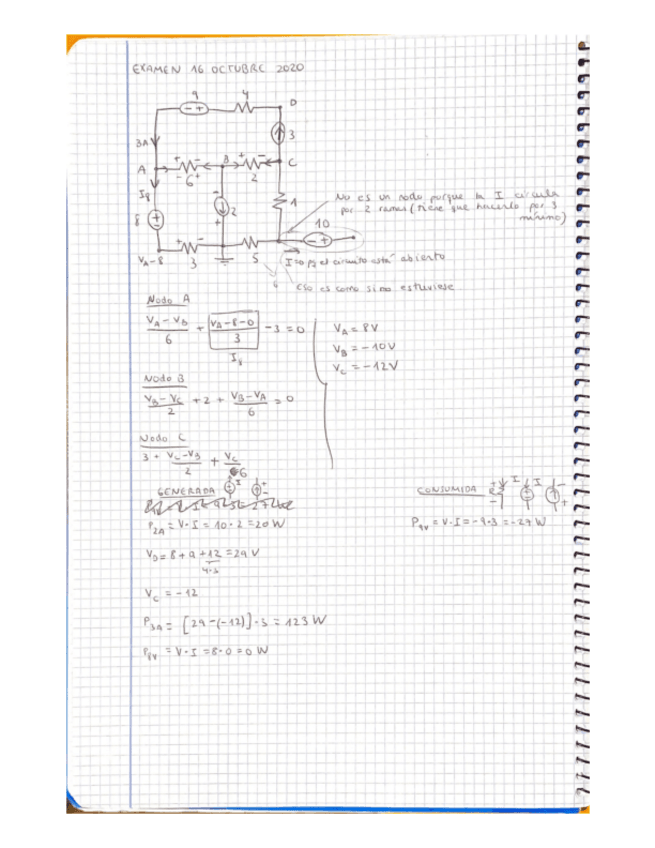 EXAMEN 16 OCTUBRE 2020
9 4 D
3A 3
A B C
6 2
I8
8 2 1
No es un nodo porque la I circula
por 2 ramas (tiene que hacerlo por 3
mínimo)
10
VA-8 3 5 I=0 pq el circuito está abierto
eso es como si no estuviese
Nodo A
(VA-VB)/6 + (VA-8-0)/3 -3=0
I8
VA = 8V
VB = -10V
VC = -12V
Nodo B
(VB-VC)/2 +2+ (VB-VA)/6 =0
Nodo C
3 + (VC-VB)/2 + VC/6
GENERADA I
P2A = V·I = 10·2 = 20W
VD = 8+9+12 = 29V
4·3
VC = -12
P3A = [29-(-12)]·3 = 123W
P8V = V·I = 8·0 = 0W
CONSUMIDA R I I
P9V = V·I = -9·3 = -27W